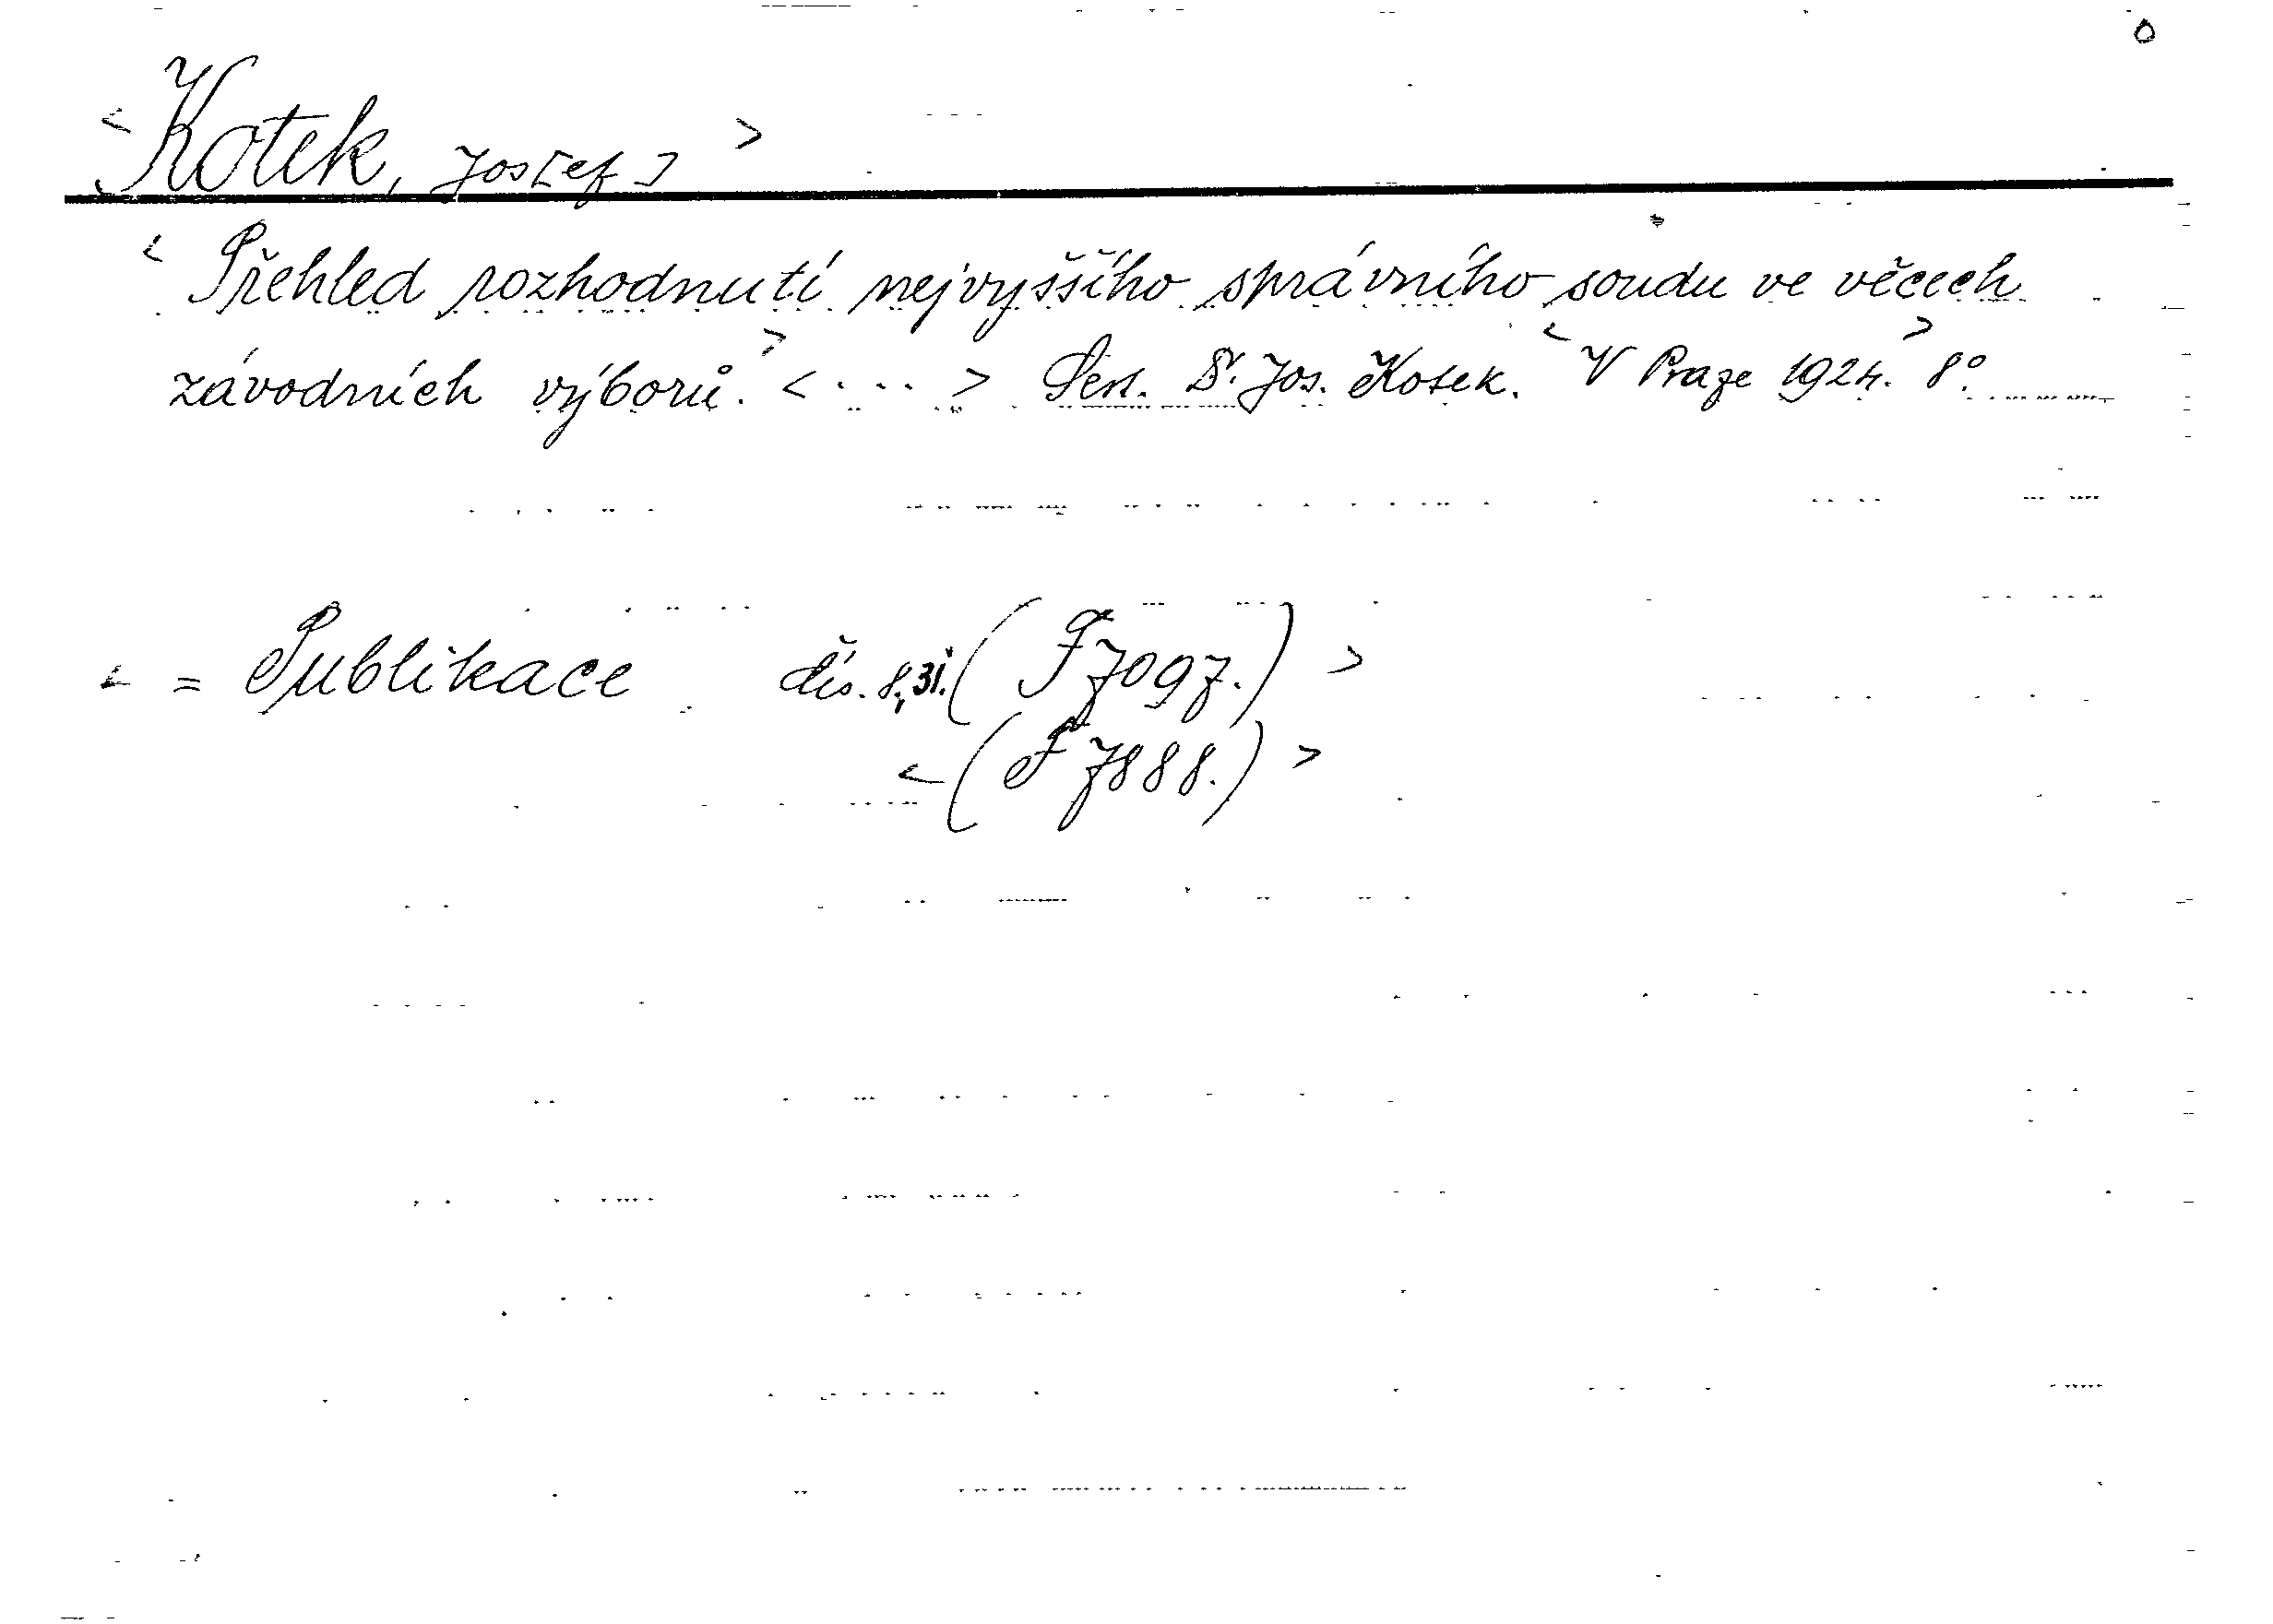 <Kotek, Jos[ef]>
<Přehled rozhodnutí nejvyššího správního soudu ve věcech
závodních výborů.> <...> Sest. Dr. Jos. Kotek. <V Praze 1924.> 8°.
<= Publikace čís. 8, 31. (F 7097.)>
<(F 7888.)>